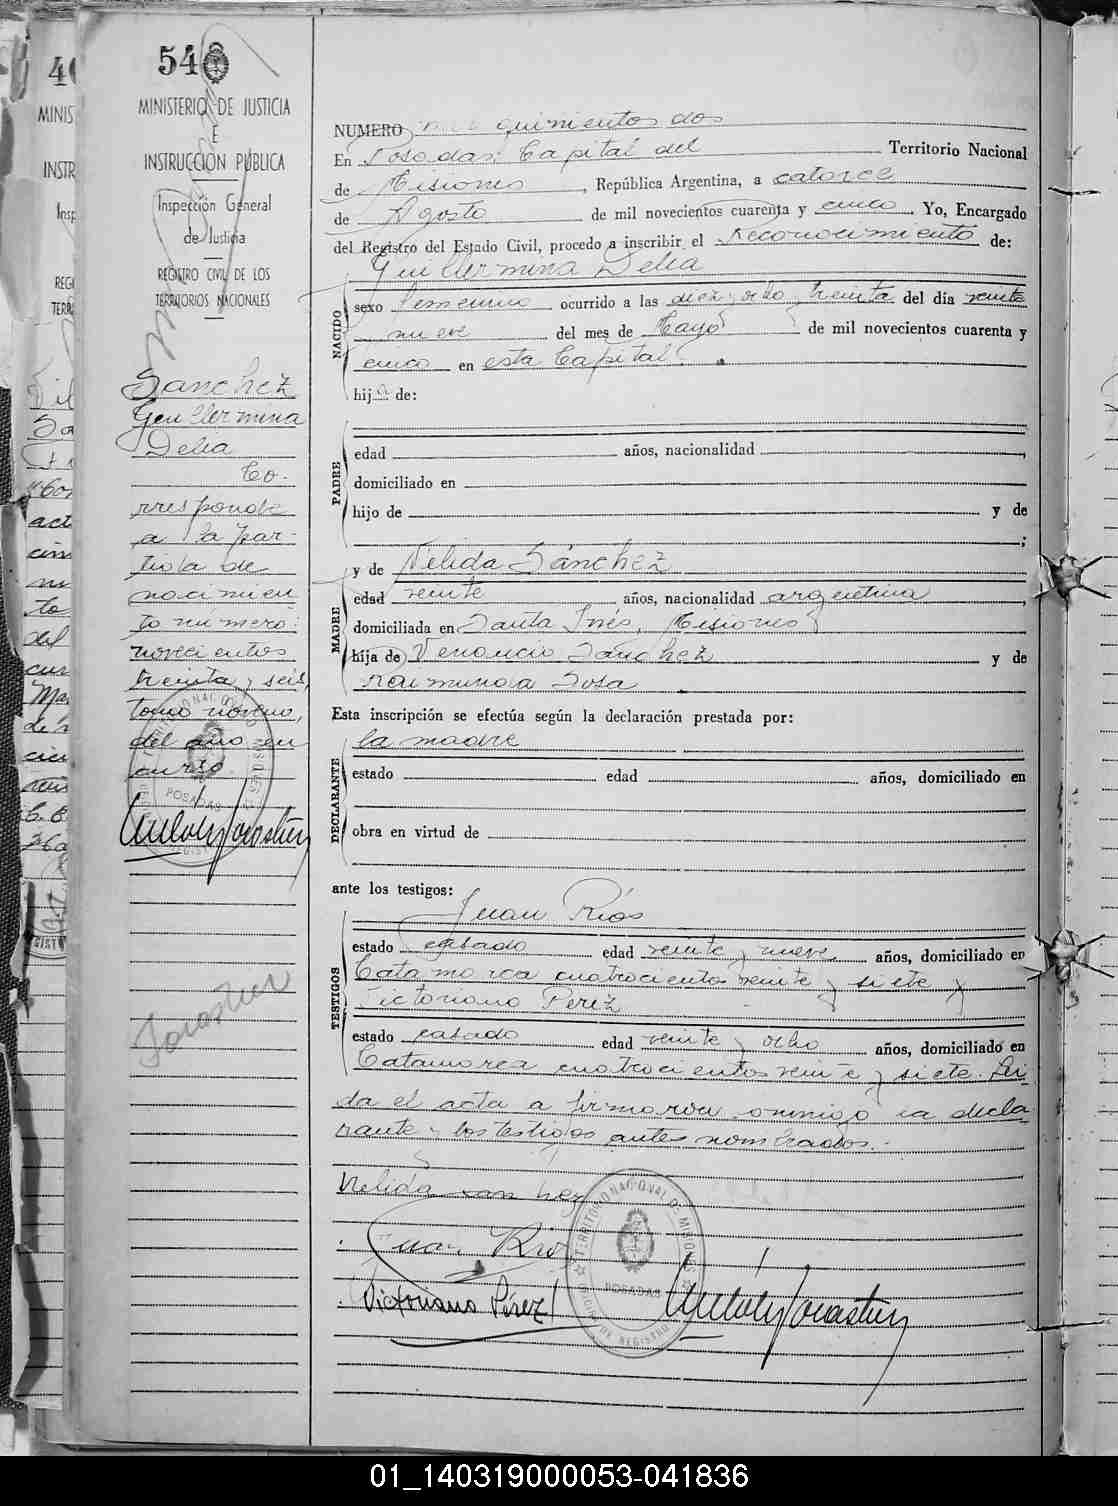 54
MINISTERIO DE JUSTICIA
E
INSTRUCCIÓN PÚBLICA
Inspección General
de Justicia
REGISTRO CIVIL DE LOS
TERRITORIOS NACIONALES
Sánchez
Guillermina
Delia
Co-
rresponde
a la par-
tida de
nacimien
to número:
novecientos
treinta y seis,
tomo noveno,
del año en
curso.
NUMERO mil quinientos dos
En Posadas, Capital del Territorio Nacional
de Misiones, República Argentina, a catorce
de Agosto de mil novecientos cuarenta y cinco. Yo, Encargado
del Registro del Estado Civil, procedo a inscribir el Reconocimiento de:
Guillermina Delia
NACIDO
sexo femenino ocurrido a las diez y ocho y treinta del día veinte
nueve del mes de Mayo de mil novecientos cuarenta y
cinco en esta Capital.
hija de:
PADRE
edad años, nacionalidad ,
domiciliado en
hijo de y de
;
MADRE
y de Nélida Sánchez
edad veinte años, nacionalidad argentina,
domiciliada en Santa Inés, Misiones
hija de Venancio Sánchez y de
Raimunda Sosa
Esta inscripción se efectúa según la declaración prestada por:
DECLARANTE
la madre
estado edad años, domiciliado en
obra en virtud de
ante los testigos:
TESTIGOS
Juan Ríos
estado casado edad veinte y nueve años, domiciliado en
Catamarca cuatrocientos veinte y siete y
Victoriano Pérez
estado casado edad veinte y ocho años, domiciliado en
Catamarca cuatrocientos veinte y siete. Leí
da el acta a firmaron conmigo la decla
rante y los testigos antes nombrados.-
Nelida sanchez
Juan Rios
Victoriano Pérez
TERRITORIO NACIONAL DE MISIONES
POSADAS
01_140319000053-041836